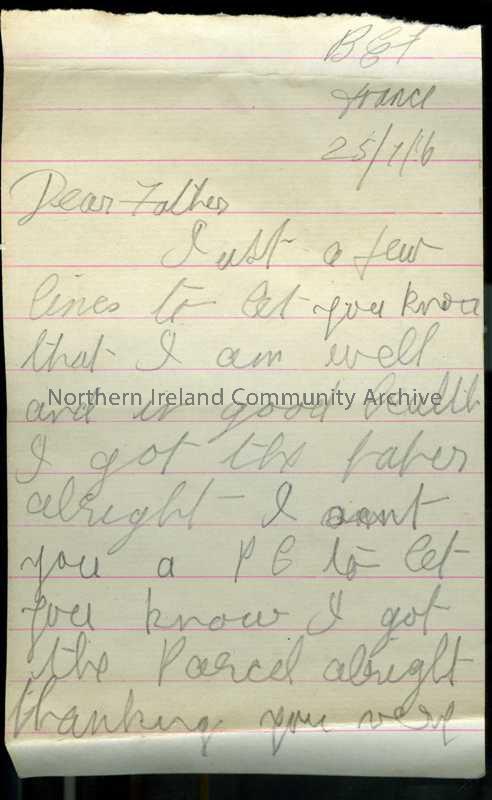 B E F
France
25/7/16
Dear Father
Just a few
lines to let you know
that I am well
Northern Ireland Community Archive
and in good health
I got the paper
alright I sent
you a P C to let
you know I got
the Parcel alright
thanking you very